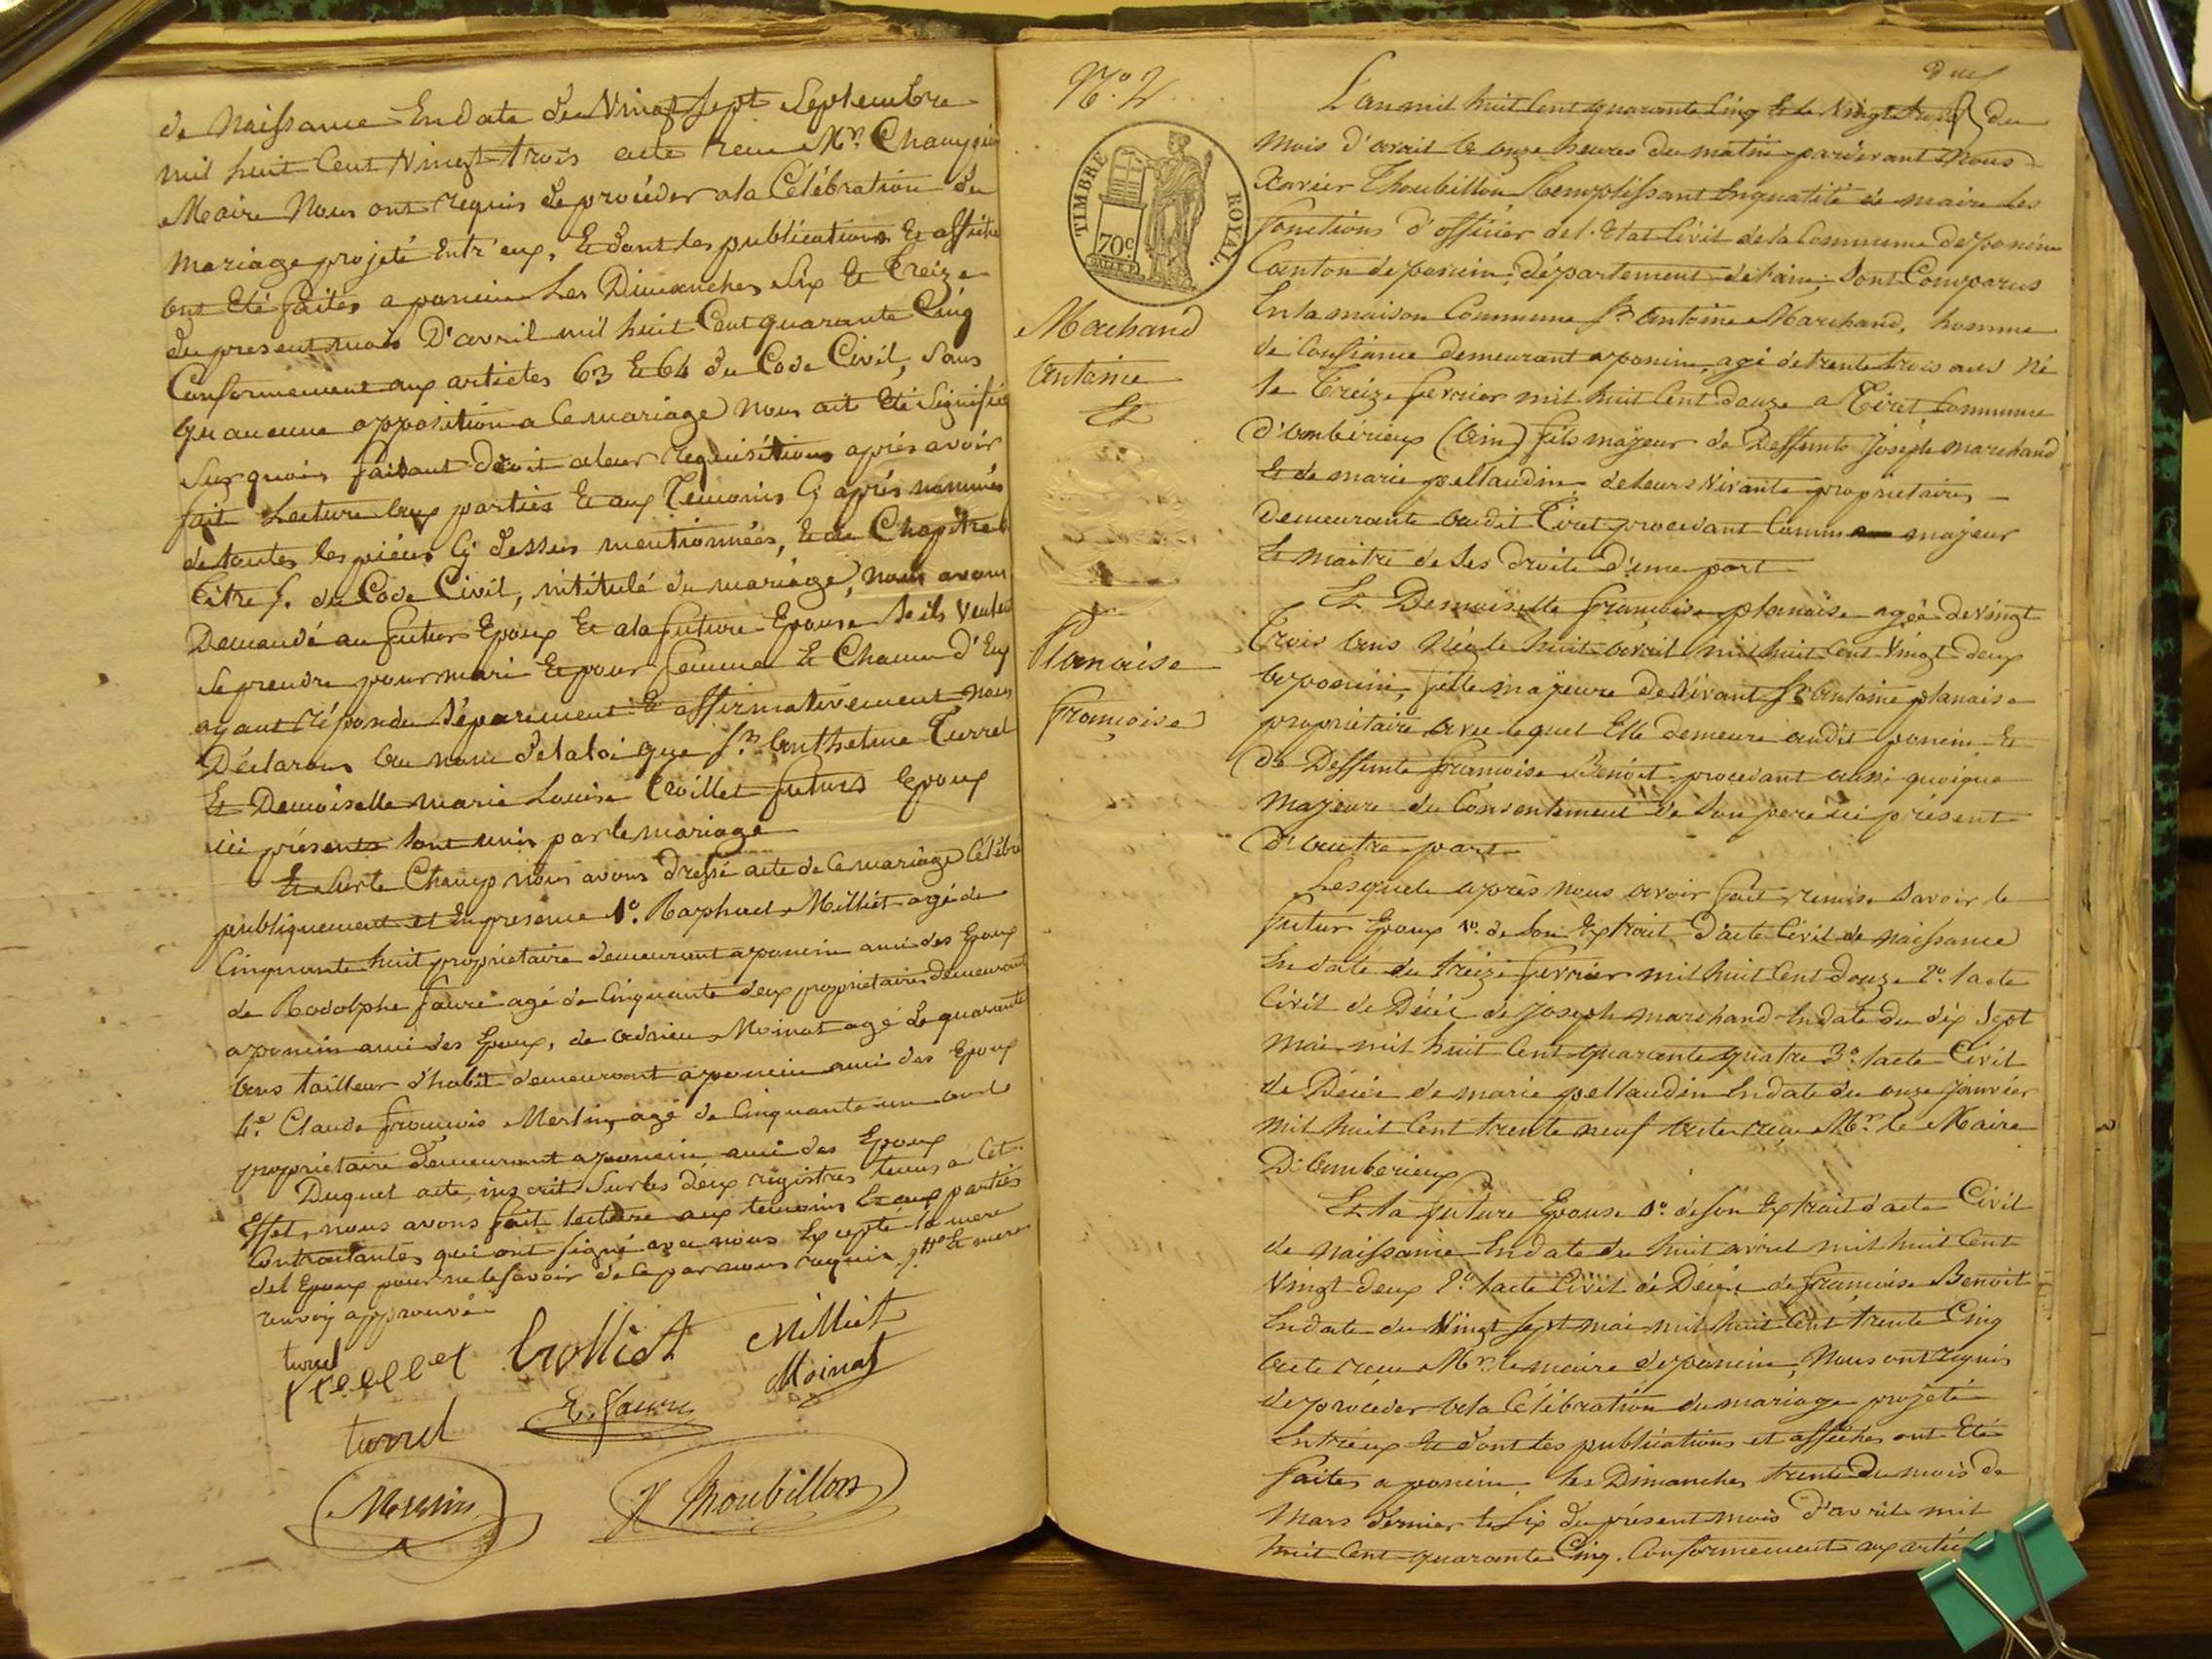 de Naissance En date du Vingt Sept Septembre
mil huit Cent Vingt trois acte recu Mr.
Maire Nous ont requis de procéder a la Célébration du
Mariage projeté Entr'eux, Et dont les publications Et affiche
ont Eté faites a poncin Les Dimanches Six Et Treize
du present mois D'avril mil huit Cent quarante Cinq
Conformement aux articles 63 Et 64 du Code Civil, Sans
qu'aucune opposition a Ce mariage nous ait Eté Signifiée
Sur quoi, faisant droit a leur requisition, après avoir
fait Lecture aux parties Et aux Temoins Cy après nommés
de toutes les pièces Cy dessus mentionnées, Et du Chapitre 6
titre 5. du Code Civil, intitulé du mariage, nous avons
Demandé au futur Epoux Et a la future Epouse Se ils veulent
Se prendre pour mari Et pour femme Et Chacun D'Eux
ayant répondu Séparement Et affirmativement, nous
Déclarons au nom de la loi que Sr. Anthelme Turrel
Et Demoiselle marie Louise futurs Epoux
ici présents Sont unis par le mariage
Et Sur le Champ nous avons dressé acte de Ce mariage Célébré
publiquement et En presence 1o. Raphael Milliet agé de
Cinquante huit propriétaire demeurant a poncin ami des Epoux
de Rodolphe faure agé de Cinquante deux propriétaire demeurant
a poncin ami des Epoux, de adrien Moinat agé de quarante
ans tailleur d'habit demeurant a poncin ami des Epoux
4o. Claude francois Merlin, agé de Cinquante un ans
propriétaire demeurant a poncin ami des Epoux
Duquel acte, inscrit Sur les deux registres tenus a Cet
Effet, nous avons fait lecture aux temoins Et aux parties
Contractantes qui ont Signé avec nous Excepté la mere
del Epoux pour ne le Savoir de Ce par nous requis
renvoi approuvé
turrel
Milliet
Moinat
turrel
E. faure
Merlin
X Thoubillon
No. 2
TIMBRE ROYAL.
70c.
Marchand
Antoine
Et
Planaise
françoise
deux
L'an mil huit Cent quarante Cinq Et le Vingt trois du
mois d'avril a onze heures du matin pardevant Nous
Xavier Thoubillon Remplissant En qualité de maire les
fonctions d'officier del. Etat Civil de la Commune de poncin
Canton de poncin, département de l'ain, Sont Comparus
En la maison Commune Sr. Antoine Marchand, homme
de Confiance demeurant a poncin, agé de trente trois ans Né
le Treize fevrier mil huit Cent douze a Tiret Commune
d'Ambérieux (Ain) fils majeur de Deffunts Joseph marchand
Et de marie pellaudin de leurs Vivants propriétaires
Demeurants audit Tiret procedant Comme majeur
Et maitre de Ses droits d'une part
Et Demoiselle françoise planaise agée de Vingt
Trois ans Née le huit avril mil huit Cent Vingt deux
a poncin, fille majeure de Vivant Sr. Antoine planaise
propriétaire avec lequel Elle demeure audit poncin Et
de Deffunte françoise Benoit procedant aussi quoique
Majeure du Consentement de Son pere ici présent
D'autre part
Lesquels après nous avoir fait remise Savoir le
futur Epoux 1o. de Son Extrait D'acte Civil de naissance
En date du treize fevrier mil huit Cent douze 2o. l'acte
Civil de Décès de Joseph marchand En date du dix Sept
mai mil huit Cent quarante quatre 3o. l'acte Civil
de Décès de marie pellaudin En date du onze janvier
mil huit Cent trente neuf acte recu Mr. le Maire
D'amberieux
Et la future Epouse 1o. de Son Extrait d'acte Civil
de naissance En date du huit avril mil huit Cent
Vingt deux 2o. l'acte Civil de Décès de françoise Benoit
En date du Vingt Sept mai mil huit Cent trente Cinq
acte recu Mr. le maire de poncin, Nous ont requis
de proceder a la Célébration du mariage projeté
Entr'eux Et dont les publications et affiches ont Eté
faites a poncin les Dimanches trente du mois de
Mars dernier Et Six du présent mois D'avril mil
huit Cent quarante Cinq. Conformement aux articles